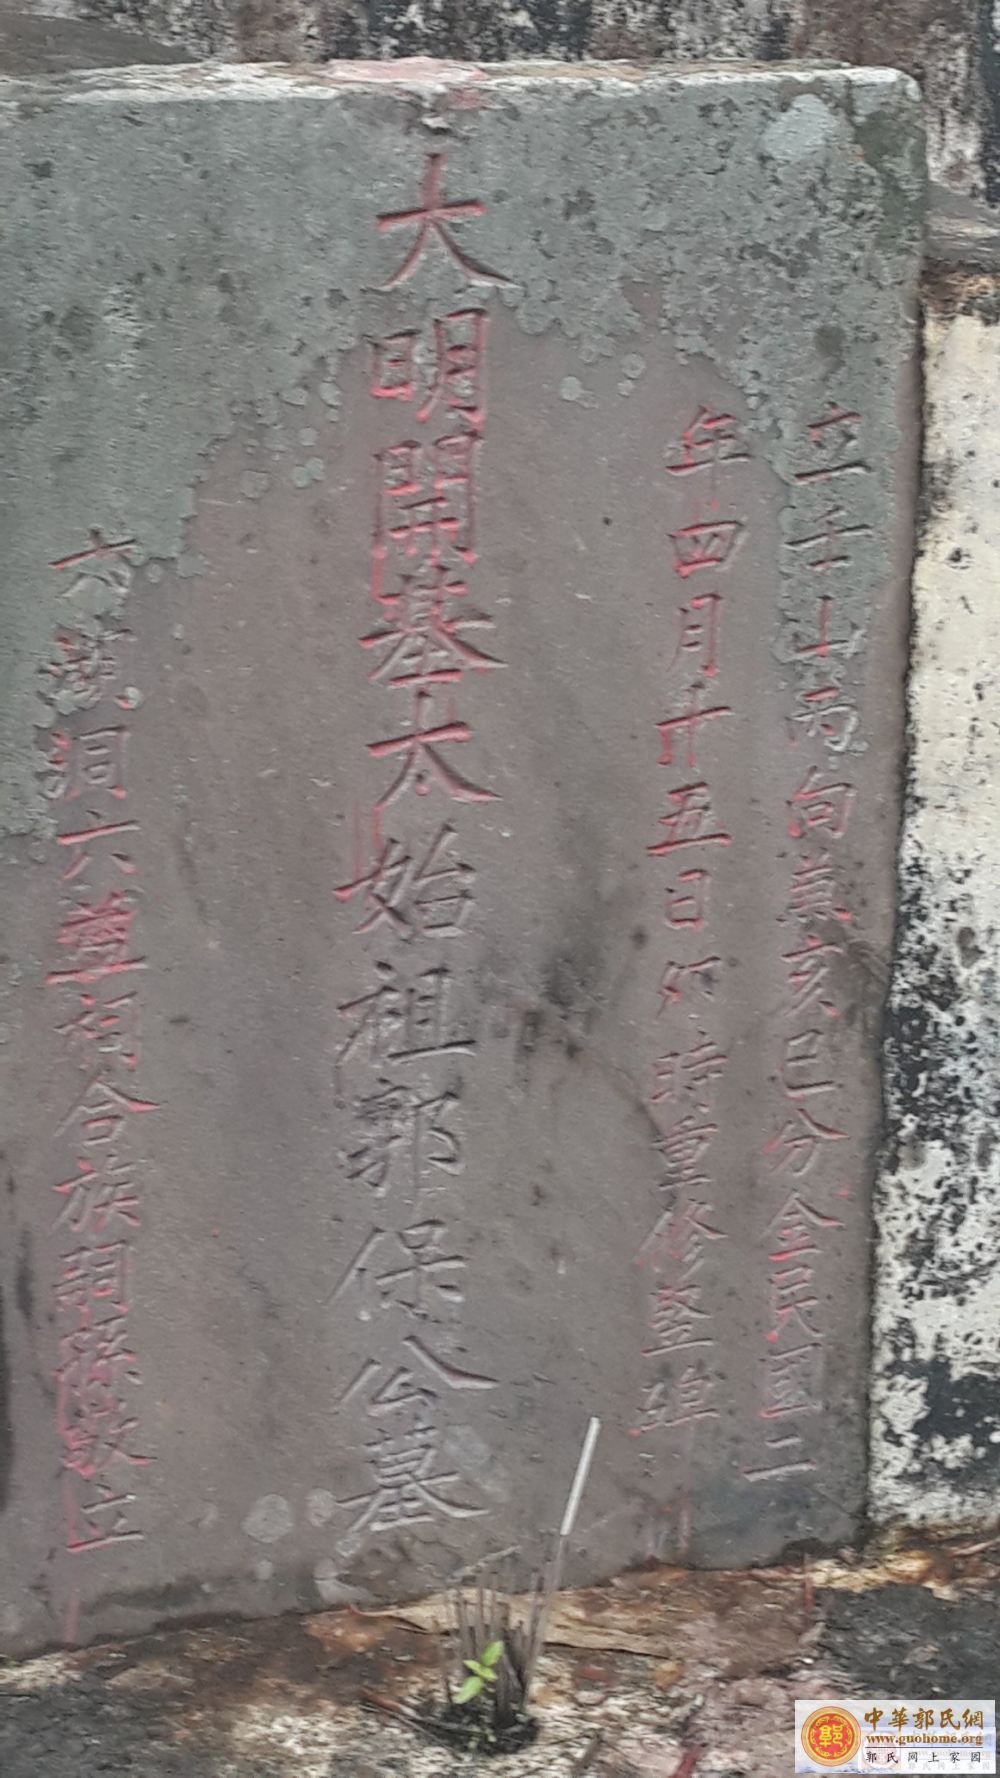 立壬山丙向兼亥巳分金民國二
年四月十五日卯時重修竪碑
大明開基太始祖郭保公墓
六 洞六 祠合族嗣孫敬立
中華郭氏網
www.guohome.org
郭氏网上家园